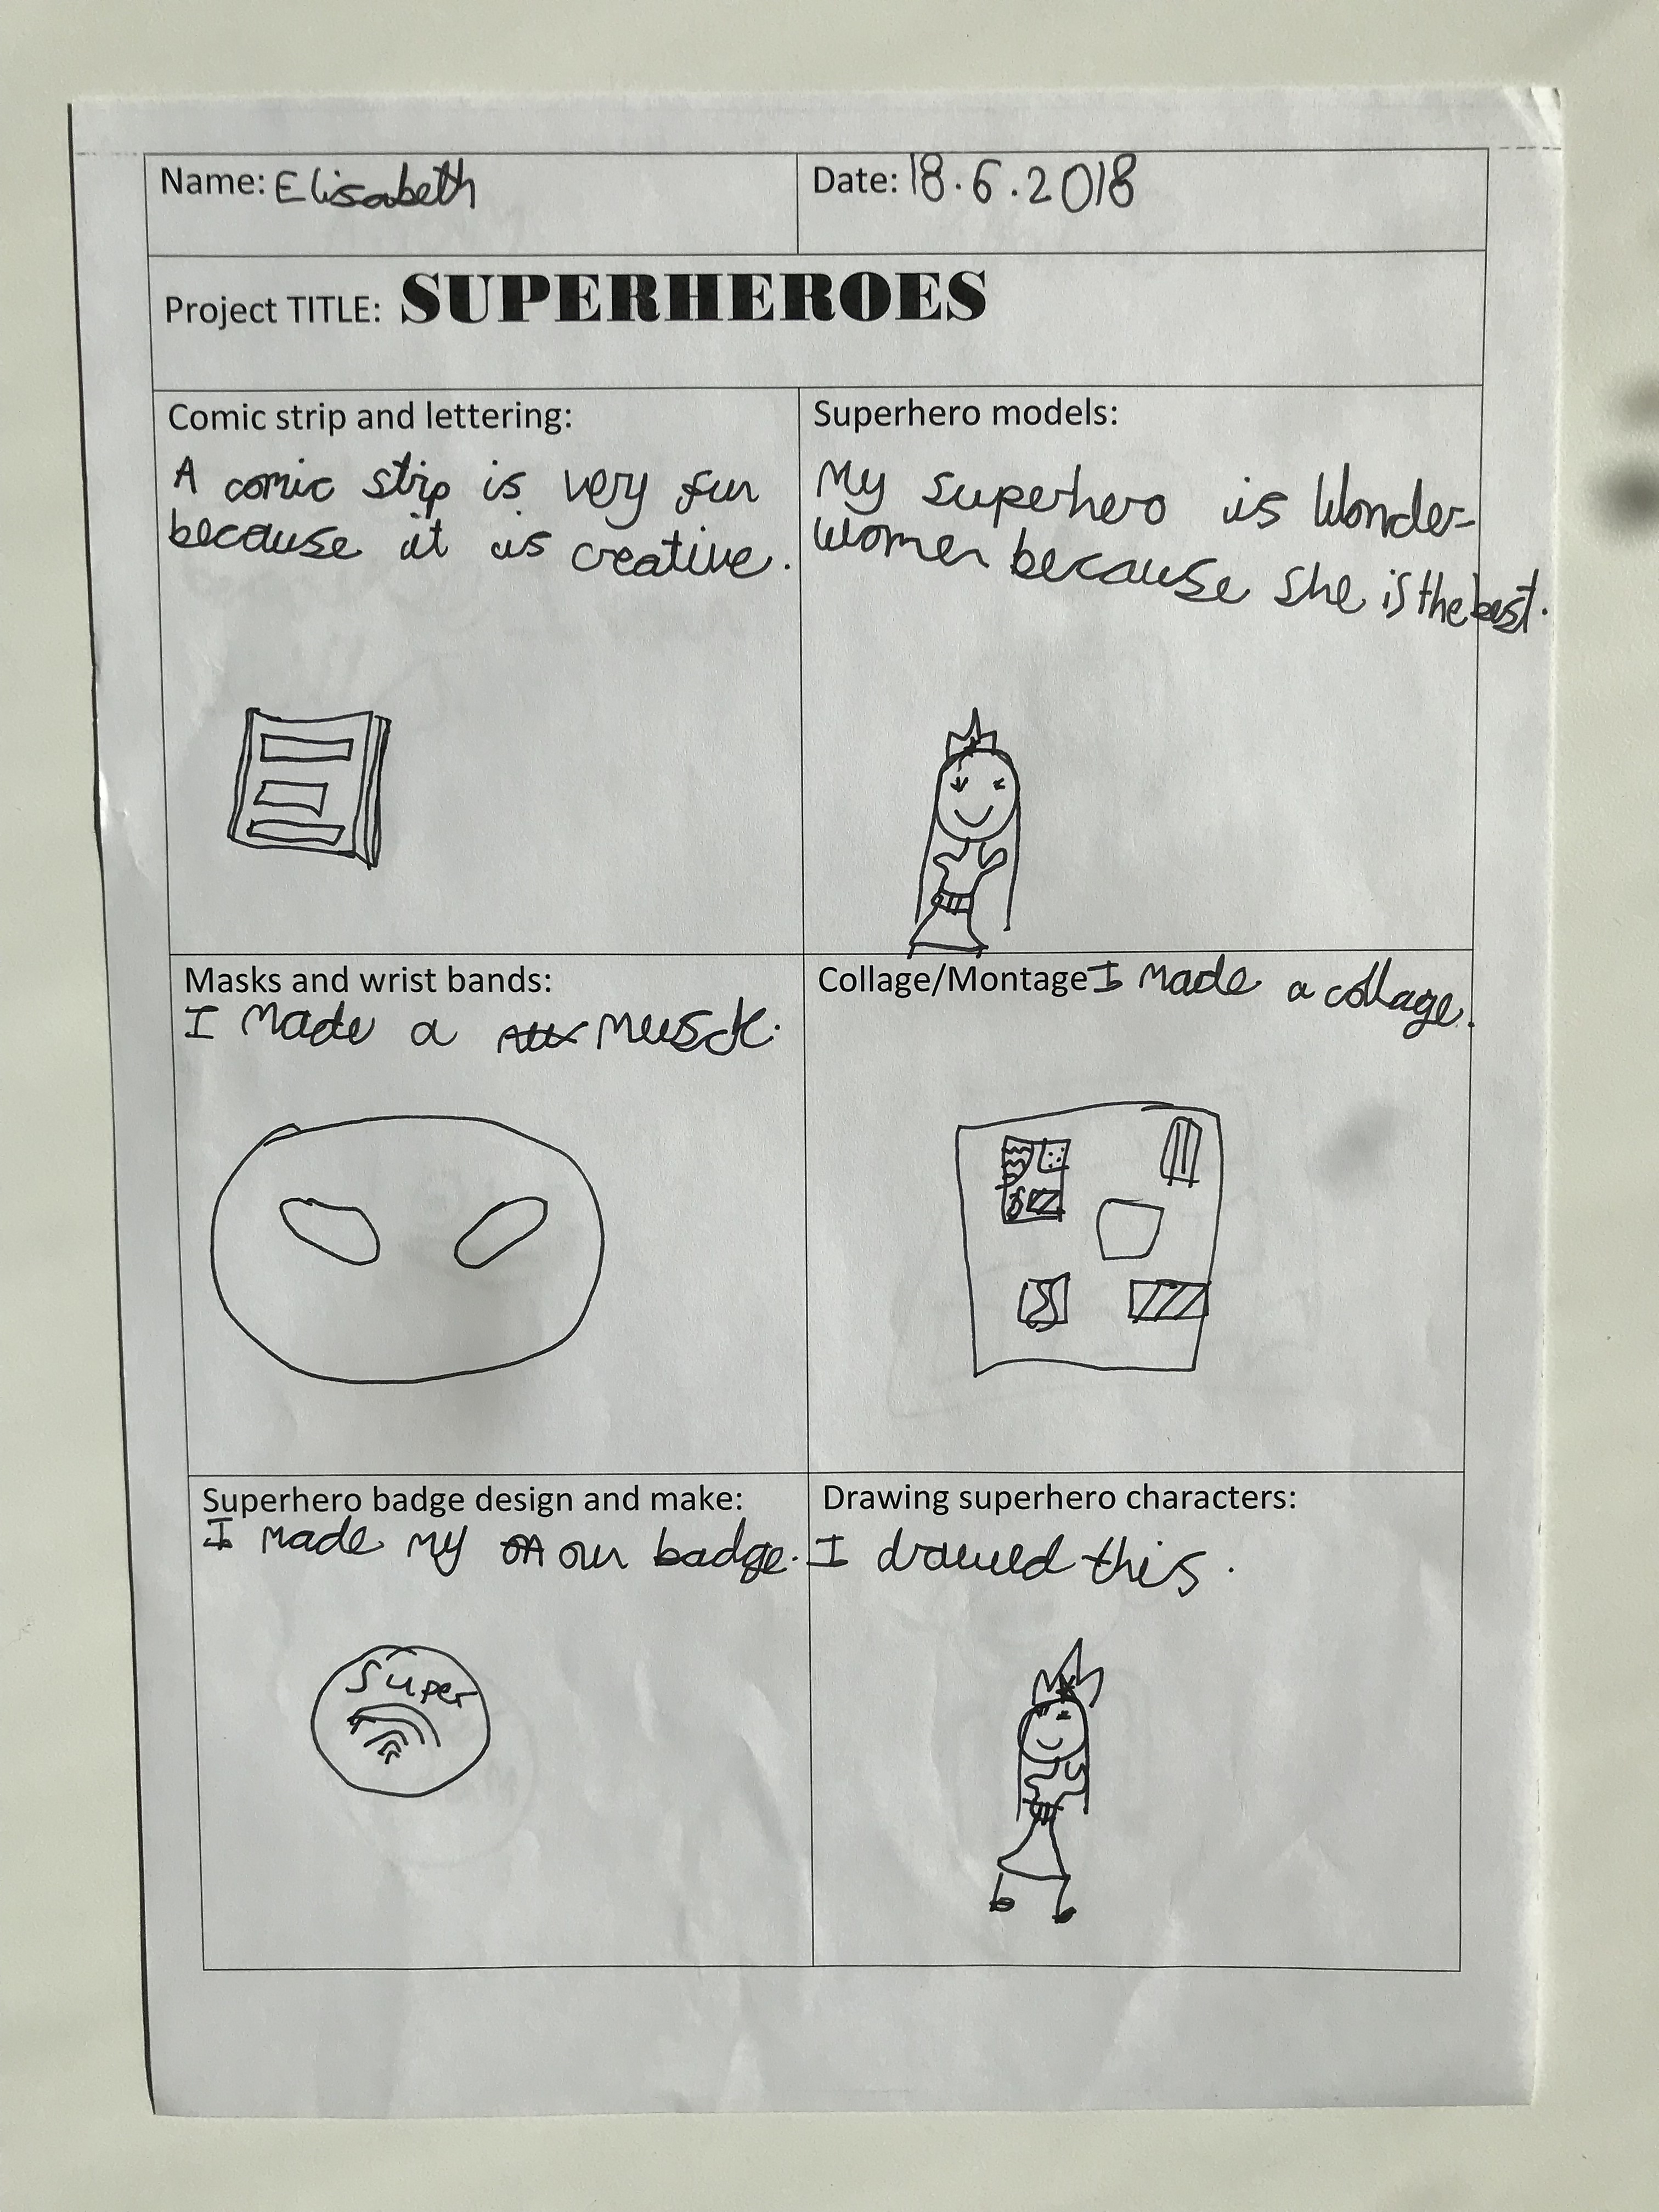 Name: Elisabeth
Date: 18.6.2018
Project TITLE: SUPERHEROES
Comic strip and lettering:
A comic strip is very fun
because it is creative.
Superhero models:
My superhero is Wonder-
women because she is the best.
Masks and wrist bands:
I made a musck.
Collage/Montage I made a collage.
Superhero badge design and make:
I made my our badge.
Super
Drawing superhero characters:
I drawed this.